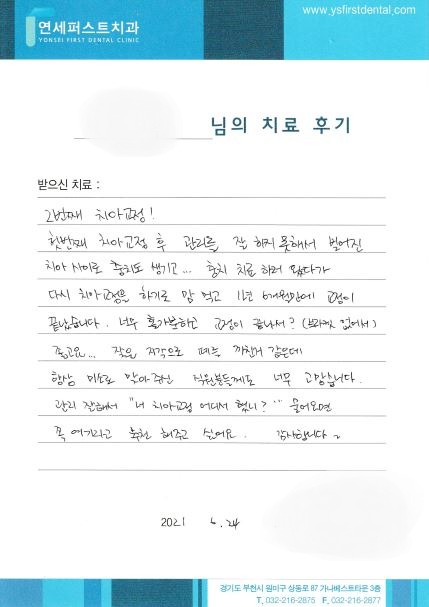 www.ysfirstdental.com
연세퍼스트치과
YONSEI FIRST DENTAL CLINIC
님의 치료 후기
받으신 치료 :
2번째 치아교정!
첫번째 치아교정 후 관리를 잘 하지 못해서 벌어진
치아 사이로 충치도 생기고... 충치 치료 하러 왔다가
다시 치아교정을 하기로 맘 먹고 1년 6개월만에 교정이
끝났습니다. 너무 홀가분하고 교정이 끝나서? (브라켓 없어서)
좋고요... 잦은 지각으로 폐를 끼친거 같은데
항상 미소로 맞아주신 직원분들께도 너무 고맙습니다.
관리 잘해서 "너 치아교정 어디서 했니?" 물어오면
꼭 여기라고 추천 해주고 싶어요. 감사합니다~
2021 6. 24
경기도 부천시 원미구 상동로 87 가나베스트타운 3층
T. 032-216-2875 F. 032-216-2877